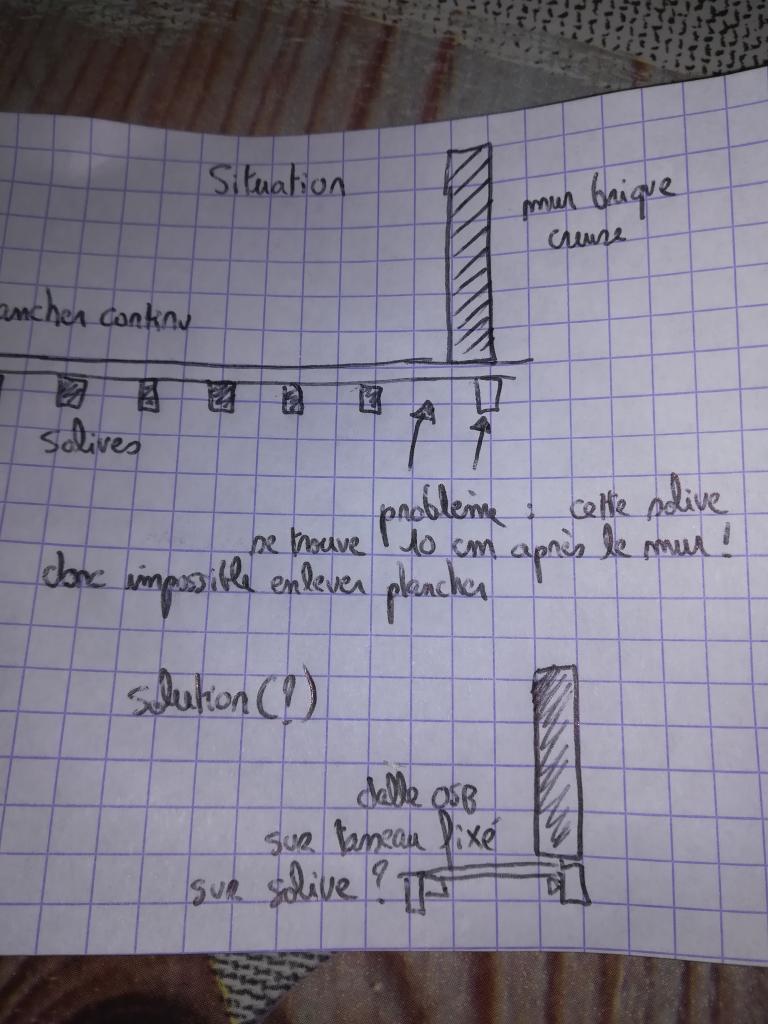 Situation
mur brique
creuse
ancher continu
solives
problème : cette solive
se trouve 10 cm après le mur !
donc impossible enlever plancher
solution (?)
dalle OSB
sur tasseau fixé
sur solive ?